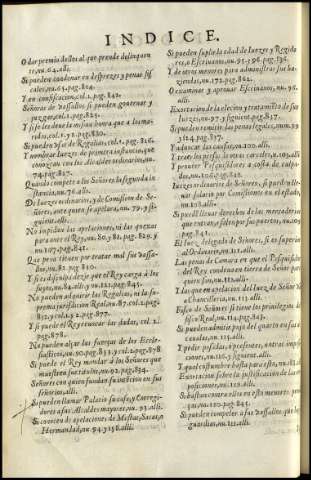 INDICE.
O dar premio destos al que prende delinquen
te, nu. 62. alli.
Si pueden condenar en desprezes y penas fis
cales, nu. 63. pag. 824.
Y en confiscaciones, col. 1. pag. 842.
Señores de Vassallos si pueden gouernar y
juzgar, col. 1. pag. 823.
Y si se les deue la misma honra que a los ma-
ridos, col. 1. y 2. pag. 830.
Si pueden vsar de Regalias, col. 1. pag. 826.
Y nombrar juezes de primera instancia, que
conozcan con los Alcaldes ordinarios, nu.
74. pag. 827.
Quando compete a los Señores la segunda in
stancia, nu. 76. alli.
De Iuezes ordinarios, y de Comission de Se-
ñores, ante quien se apelara, nu. 79. y si-
guiente alli.
No impidan las apelaciones, ni las quexas
para ante el Rey, nu. 80. y 81. pag. 829. y
nu. 107. pag. 842.
Que pena tienen por tratar mal sus Vassa-
llos, nu. 82. pag. 830.
Y si es disculpa dezir, que el Rey carga a los
suyos, nu. 84. alli. y 142. pag. 845.
No pueden adquirir las Regalias, ni la su-
prema juridicion Realnu. 87. col. 2. pag.
832. y col. 1. y 2. pag. 877.
Y si puede el Rey reuocar las dadas, col. 2.
pag. 878.
No pueden alçar las fuerças de los Eccle-
siasticos, nu. 90. pag. 833. y col. 2. pag. 878
Si puede el Rey mandar a los Señores que
muestren sus titulos, nu. 92. pag. 834.
Señores con quien fundan su intencion en sus
señorios, alli.
Si pueden llamar Palacio su casa, y Corregi-
dores a sus Alcaldes mayores, nu. 93. alli.
Si conocen de apelaciones de Mestas, Sacas, o
Hermandad, nu. 94. y 158. alli.
Si pueden suplir la edad de Iuezes y Regido
res, o Escriuanos, nu. 95. y 96. pag. 836.
Y de otros menores para administrar sus ha-
ziendas, nu. 172. pag. 862.
O examinar y aprouar Escriuanos, nu. 96.
alli.
Exortacion de la eleccion y tratamiento de sus
Iuezes, nu. 97. y siguient. pag. 837.
Si pueden remitir las penas legales, num. 99
y 124. pag. 837.
Y aduocar las causas, nu. 100. alli.
Y prender las partes en otras carceles, n. 103. alli
Y proueer Pesquisidores a costa de culpa-
dos, nu. 106. pag. 842.
Iuezes ordinarios de Señores, si pueden lle-
uar salario por Comissiones en el estado,
nu. 108. alli.
Si puede lleuar derechos de las mercaderias
que entran, o salen por sus puertos, nu. 109.
pag. 842.
El Iuez delegado de Señores, si es superior
al Ordinario, nu. 112. alli.
Las penas de Camara en que el Pesquisidor
del Rey condena en tierra de Señor para
quien son, nu. 112. alli.
Y las que en apelacion del Iuez de Señor
Chancilleria, nu. 113. alli.
Fisco de Señores si tiene los priuilegios del
fisco Real, nu. 114. pag. 843.
Si pueden admitir puja del quarto en su ha
zienda, nu. 115. alli.
Y pedir pedidos, o presentes, o otras impo-
siciones, nu. 120. y siguient. alli.
Y qual costumbre basta para esto, nu. 122. alli.
Exortacion sobre la justificacion de las im-
posiciones, nu. 123. alli.
Si bastan contra ellos en esto menores proua-
ciones, nu. 120. pag. 845.
Si pueden compeler a sus Vassallos, que los
guarden, nu. 122. alli.